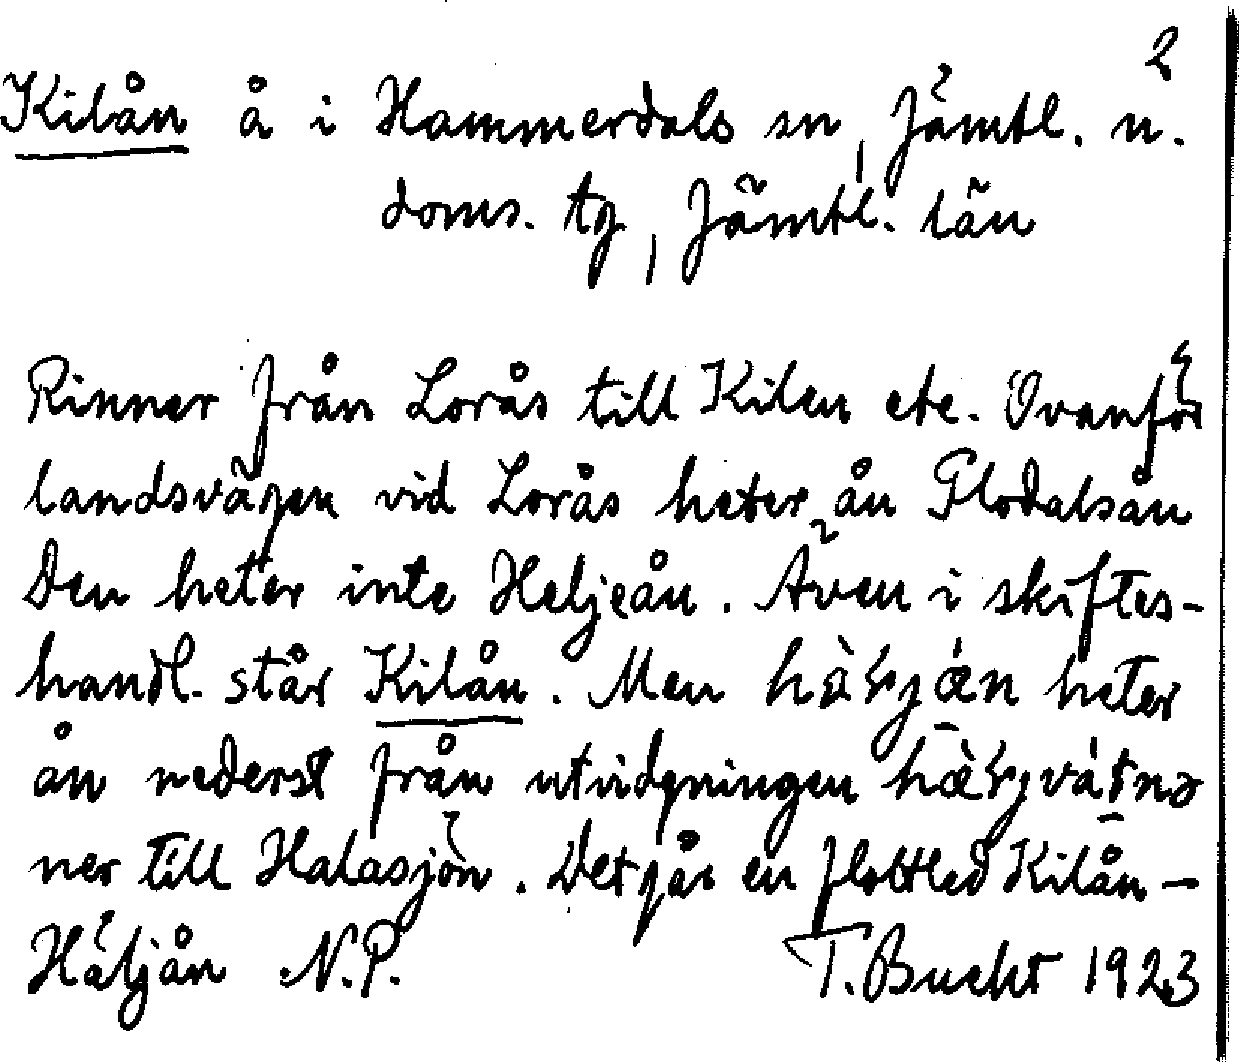 2
Kilån å i Hammerdals sn, Jämtl. n.
doms. tg, Jämtl. län
Rinner från Lorås till Kilen etc. Ovanför
landsvägen vid Lorås heter ån Flodalsån
Den heter inte Heljeån. Även i skiftes-
handl. står Kilån. Men heter
ån nederst från utvidgningen
ner till Halasjön. Det går en flottled Kilån-
Häljån N.P. T. Bucht 1923